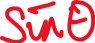 sin Θ